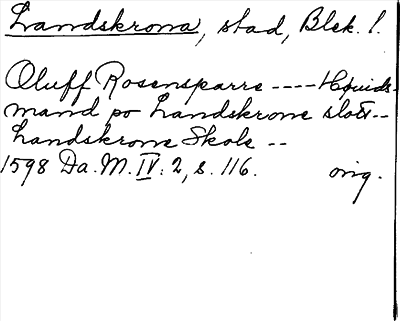 Landskrona, stad, Blek. l.
Oluff Rosensparre ---- Høuids-
mand po Landskrone slott--
Landskrone Skole --
1598 Da. M. IV. 2, s. 116. orig.